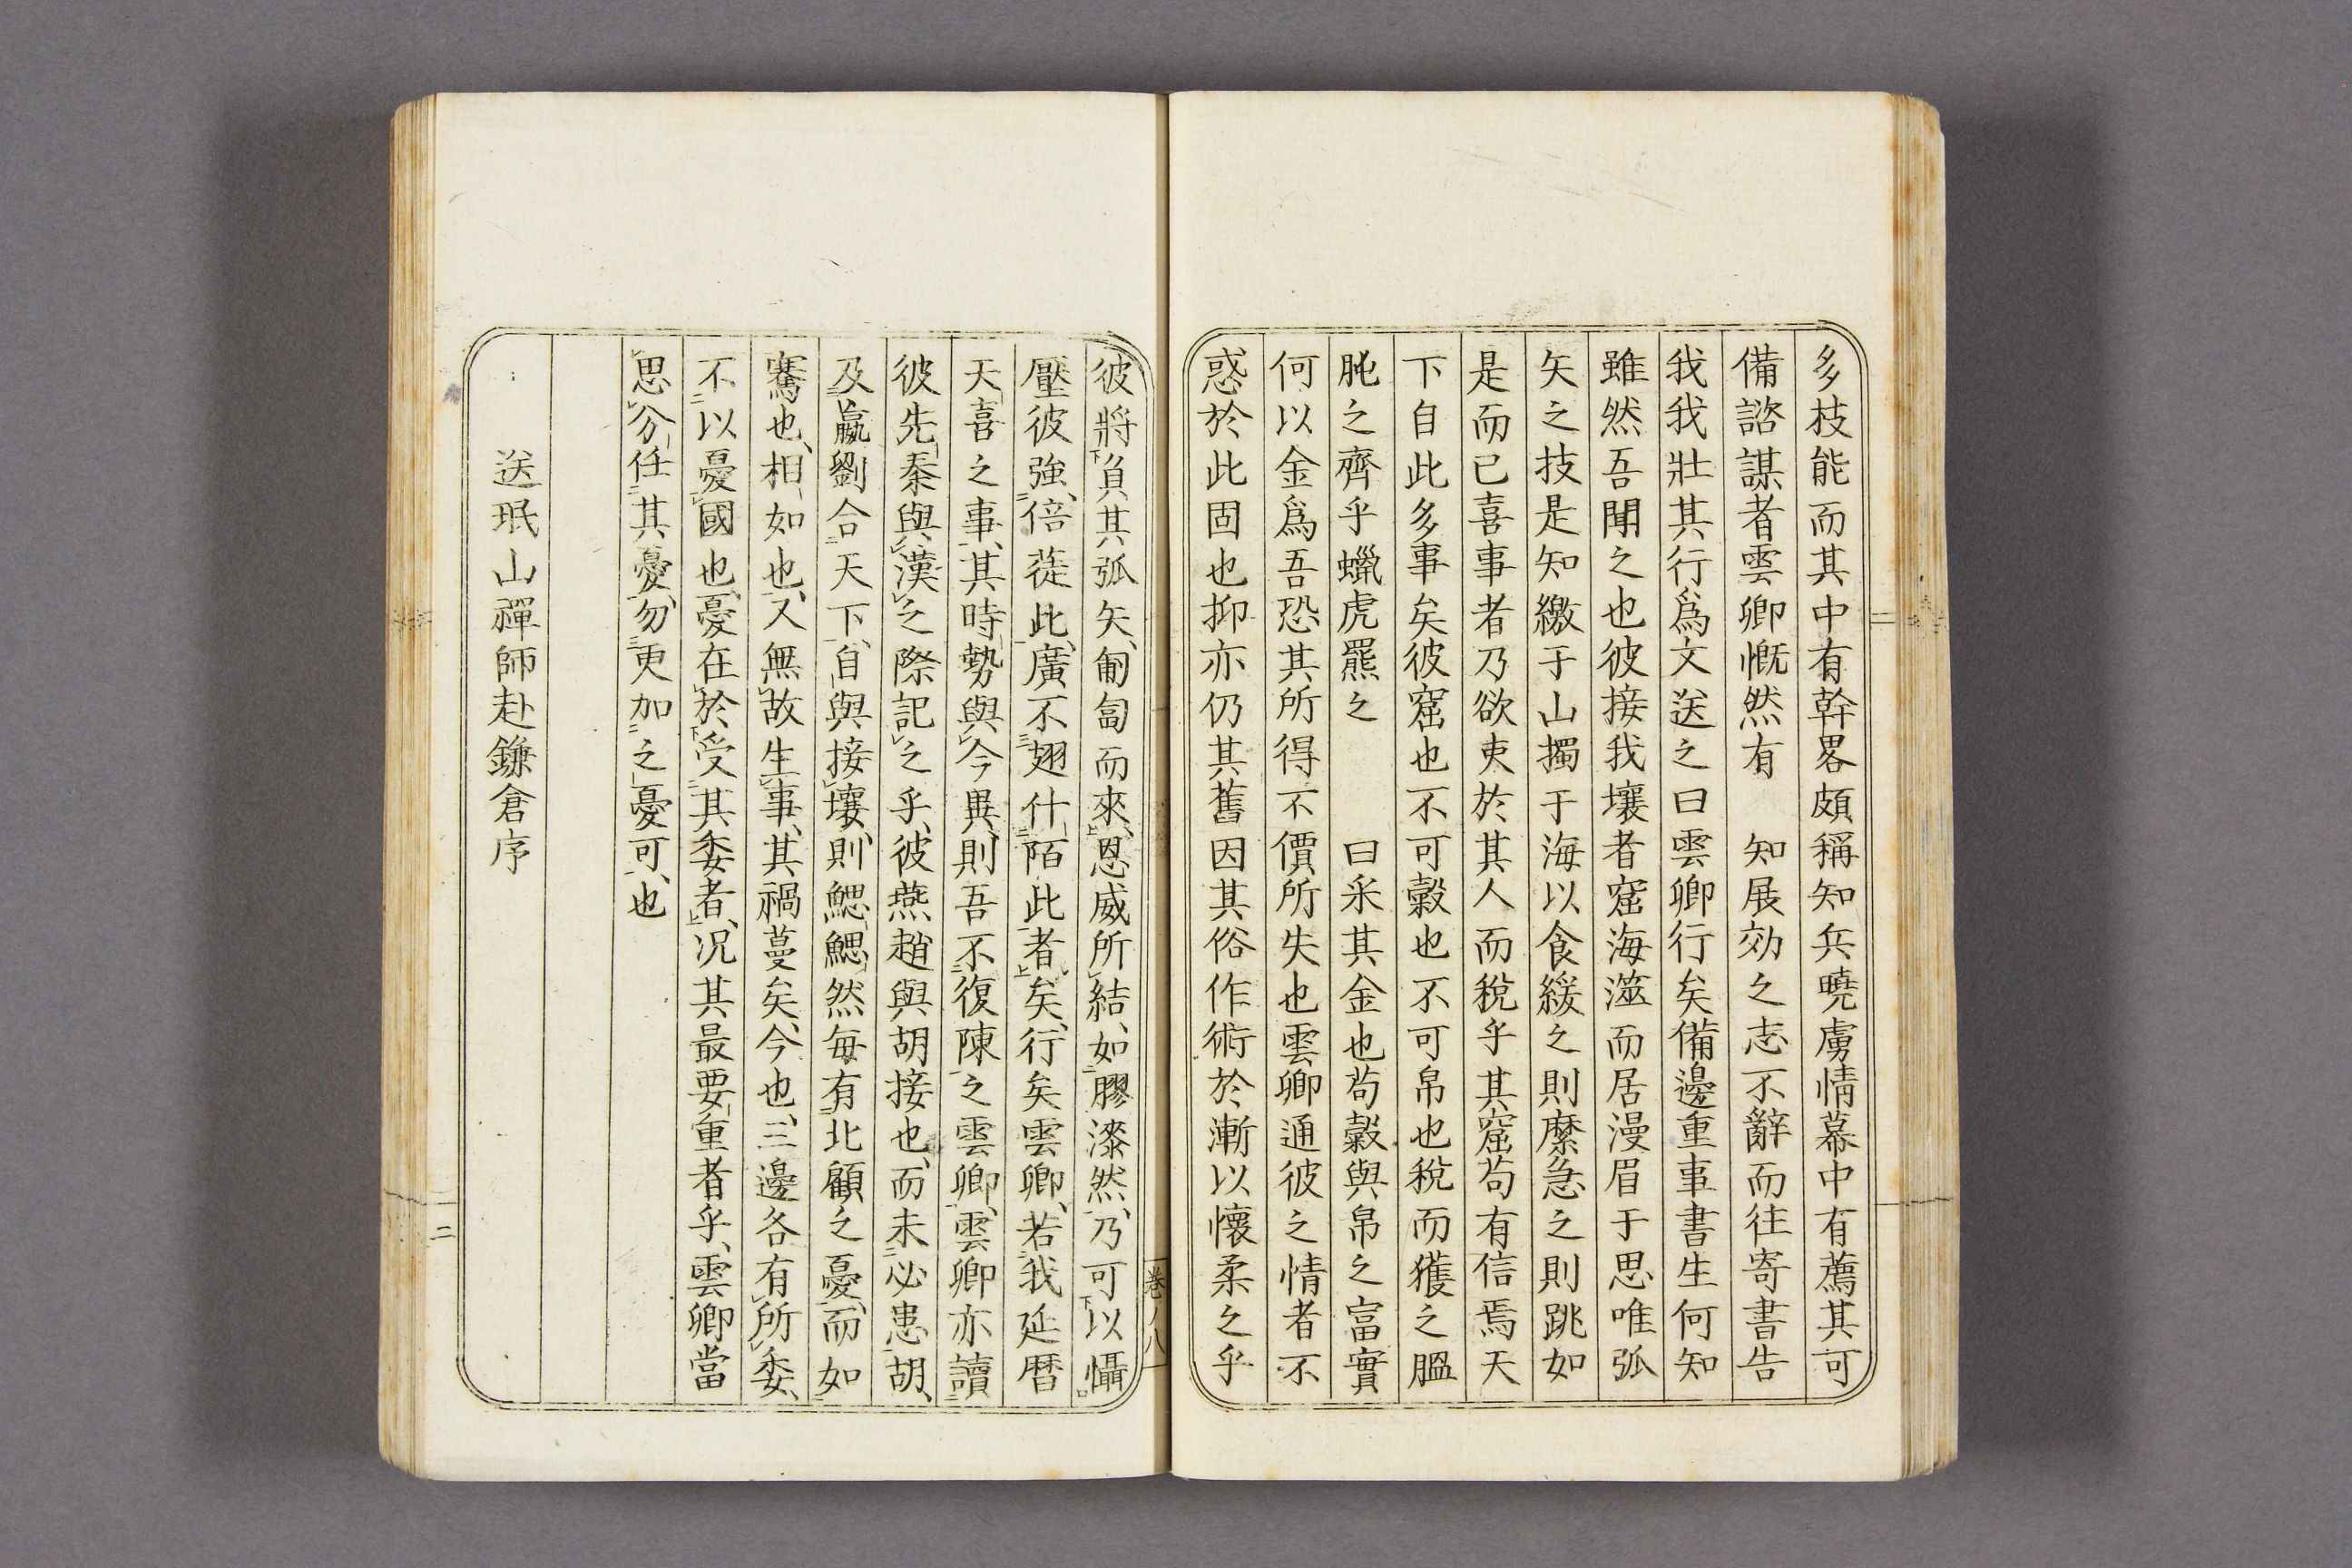 多枝能而其中有幹畧頗稱知兵曉虜情幕中有薦其可
備諮謀者雲卿慨然有　知展効之志不辭而往寄書告
我我壯其行爲文送之曰雲卿行矣備邊重事書生何知
雖然吾聞之也彼接我壤者窟海澨而居漫眉于思唯弧
矢之技是知繳于山擉于海以食緩之則縻急之則跳如
是而已喜事者乃欲吏於其人而稅乎其窟苟有信焉天
下自此多事矣彼窟也不可穀也不可帛也稅而獲之膃
肭之齊乎蠟虎羆之　　曰采其金也苟穀與帛之富實
何以金爲吾恐其所得不價所失也雲卿通彼之情者不
惑於此固也抑亦仍其舊因其俗作術於漸以懷柔之乎
彼將負其弧矢、匍匐而來、恩威所結、如膠漆然、乃可以懾
壓彼強、倍蓰此、廣不翅什陌此者矣、行矣雲卿、若我延曆
天喜之事、其時勢與今異、則吾不復陳之雲卿、雲卿亦讀
彼先秦與漢之際記之乎、彼燕趙與胡接也、而未必患胡、
及嬴劉合天下、自與接壤、則鰓鰓然每有北顧之憂、而如
騫也、相如也、又無故生事、其禍蔓矣、今也、三邊各有所委、
不以憂國也、憂在於受其委者、况其最要重者乎、雲卿當
思分任其憂、勿更加之憂可也
送珉山禪師赴鎌倉序
卷ノ八
二